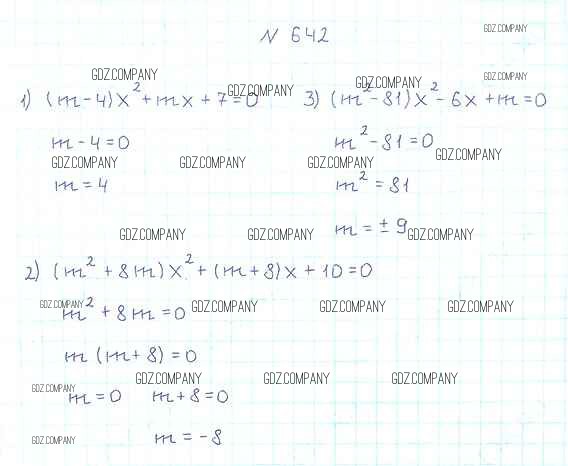 N 642
GDZ.COMPANY
GDZ.COMPANY GDZ.COMPANY GDZ.COMPANY GDZ.COMPANY
1) (m-4)x²+mx+7=0
3) (m²-81)x²-6x+m=0
m-4=0
m²-81=0
GDZ.COMPANY GDZ.COMPANY GDZ.COMPANY GDZ.COMPANY
m=4
m²=81
m=±9
GDZ.COMPANY GDZ.COMPANY GDZ.COMPANY
2) (m²+8m)x²+(m+8)x+10=0
GDZ.COMPANY GDZ.COMPANY GDZ.COMPANY GDZ.COMPANY
m²+8m=0
m(m+8)=0
GDZ.COMPANY GDZ.COMPANY GDZ.COMPANY GDZ.COMPANY
m=0 m+8=0
m=-8
GDZ.COMPANY